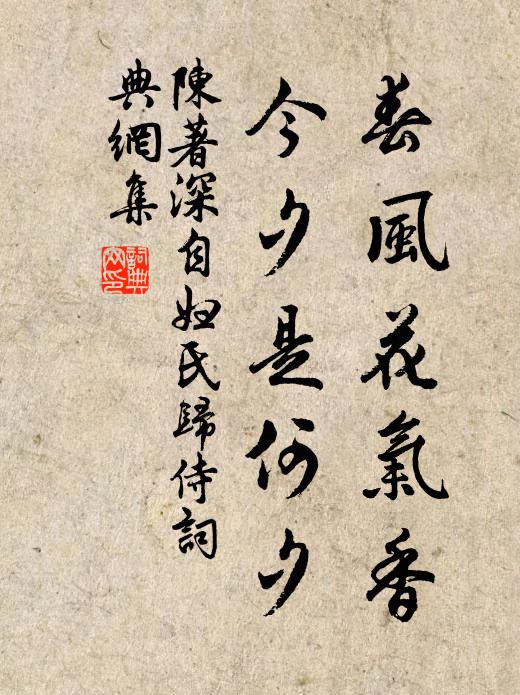 春風花氣香
今夕是何夕
陳著深自妲氏歸侍詞
典網集
詞典網印